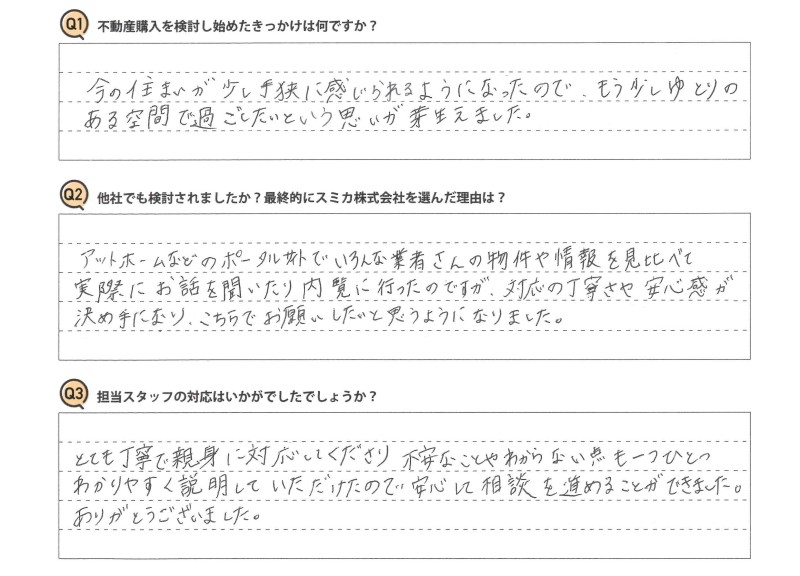 Q1 不動産購入を検討し始めたきっかけは何ですか？
今の住まいが少し手狭に感じられるようになったので、もう少しゆとりの
ある空間で過ごしたいという思いが芽生えました。
Q2 他社でも検討されましたか？最終的にスミカ株式会社を選んだ理由は？
アットホームなどのポータルサイトでいろんな業者さんの物件や情報を見比べて
実際にお話を聞いたり内覧に行ったのですが、対応の丁寧さや安心感が
決め手になり、こちらでお願いしたいと思うようになりました。
Q3 担当スタッフの対応はいかがでしたでしょうか？
とても丁寧で親身に対応してくださり 不安なことやわからない点も一つひとつ
わかりやすく説明していただけたので安心して相談を進めることができました。
ありがとうございました。